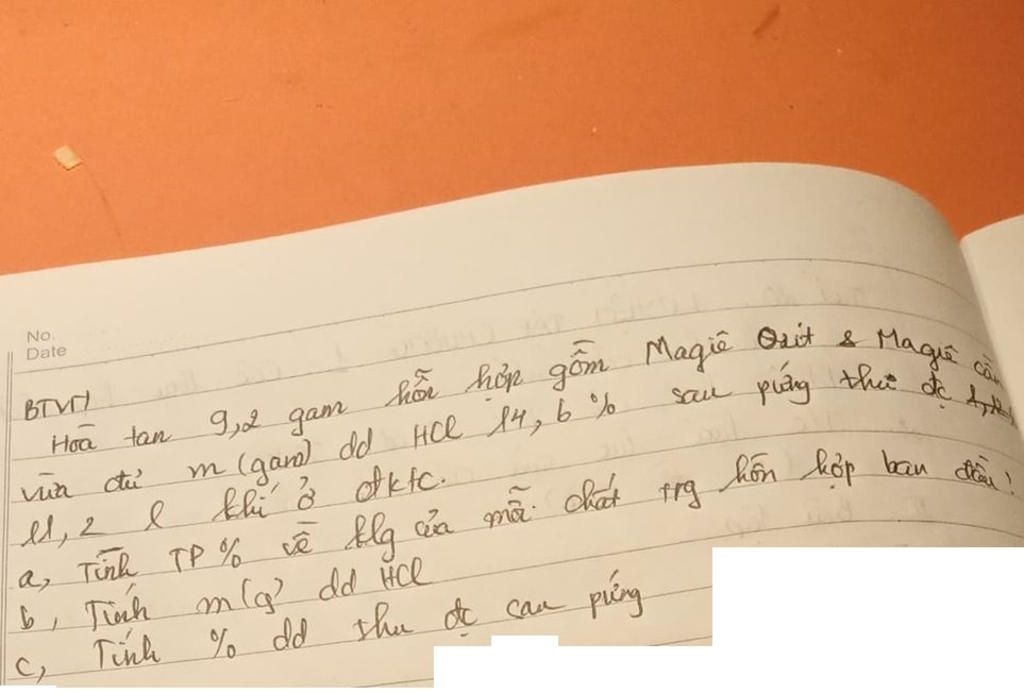 No.
Date
BTVN
Hoà tan 9,2 gam hỗn hợp gồm Magiê Oxit & Magiê cần
vừa đủ m (gam) dd HCl 14,6 % sau pứng thu đc
11,2 l khí ở đktc.
a, Tính TP % về klg của mỗi chất trg hỗn hợp ban đầu!
b, Tính m(g) dd HCl
c, Tính % dd thu đc cau pứng